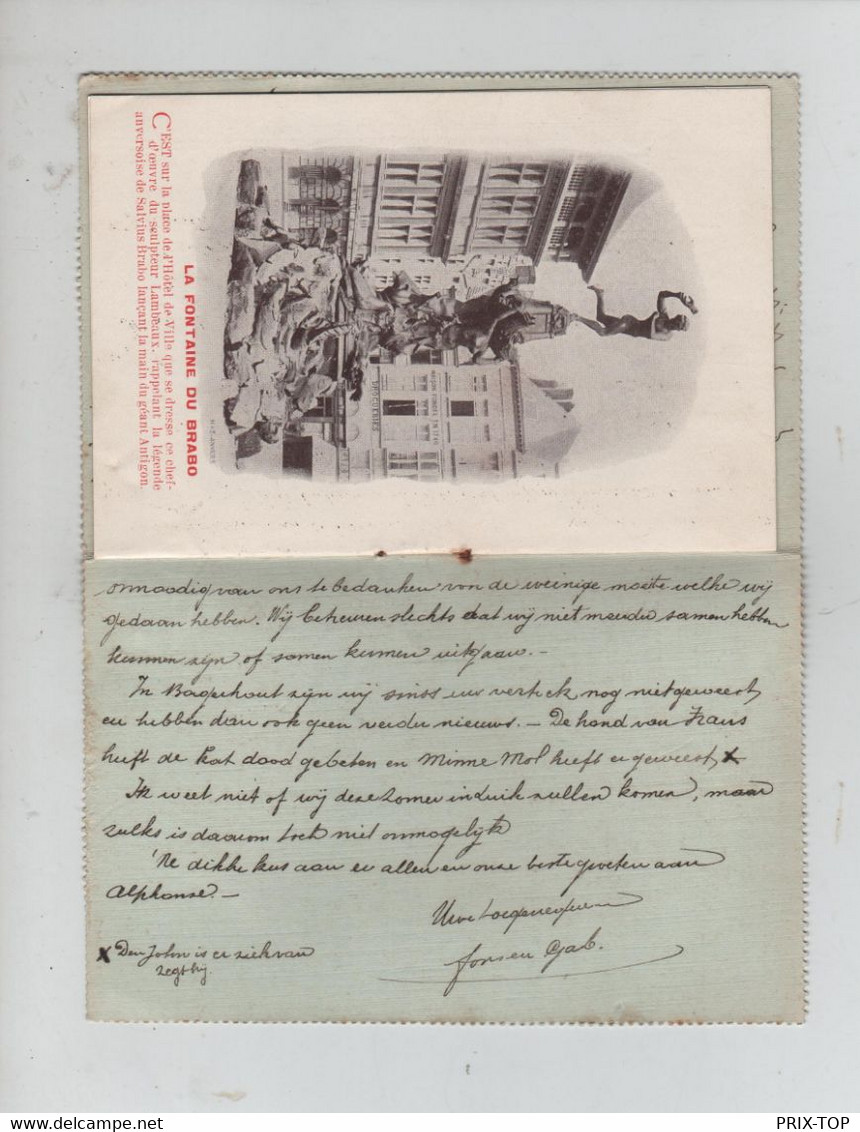 LA FONTAINE DU BRABO
C'EST sur la place de l'Hôtel de Ville que se dresse ce chef-
d'œuvre du sculpteur Lambeaux, rappelant la légende
anversoise de Salvius Brabo lançant la main du géant Antigon.
DROGUERIES
onnoodig van ons te bedanken von de weinige moeite welke wij
gedaan hebben. Wij betreuren slechts dat wij niet meerder samen hebben
kunnen zijn of samen kunnen uitgaan. —
In Borgerhout zijn wij sinds uw vertrek nog niet geweest
en hebben dan ook geen verder nieuws. — De hond van Frans
heeft de kat dood gebeten en Minne Mol heeft er geweest, x
Ik weet niet of wij deze Zomer in Luik zullen komen, maar
zulks is daarom toch niet onmogelijk
'Ne dikke kus aan er allen en onze beste groeten aan
Alphonse. —
Uwe toegenegenen
Fons en Gab.
x Den John is er ziek van
zegt hij.
PRIX-TOP